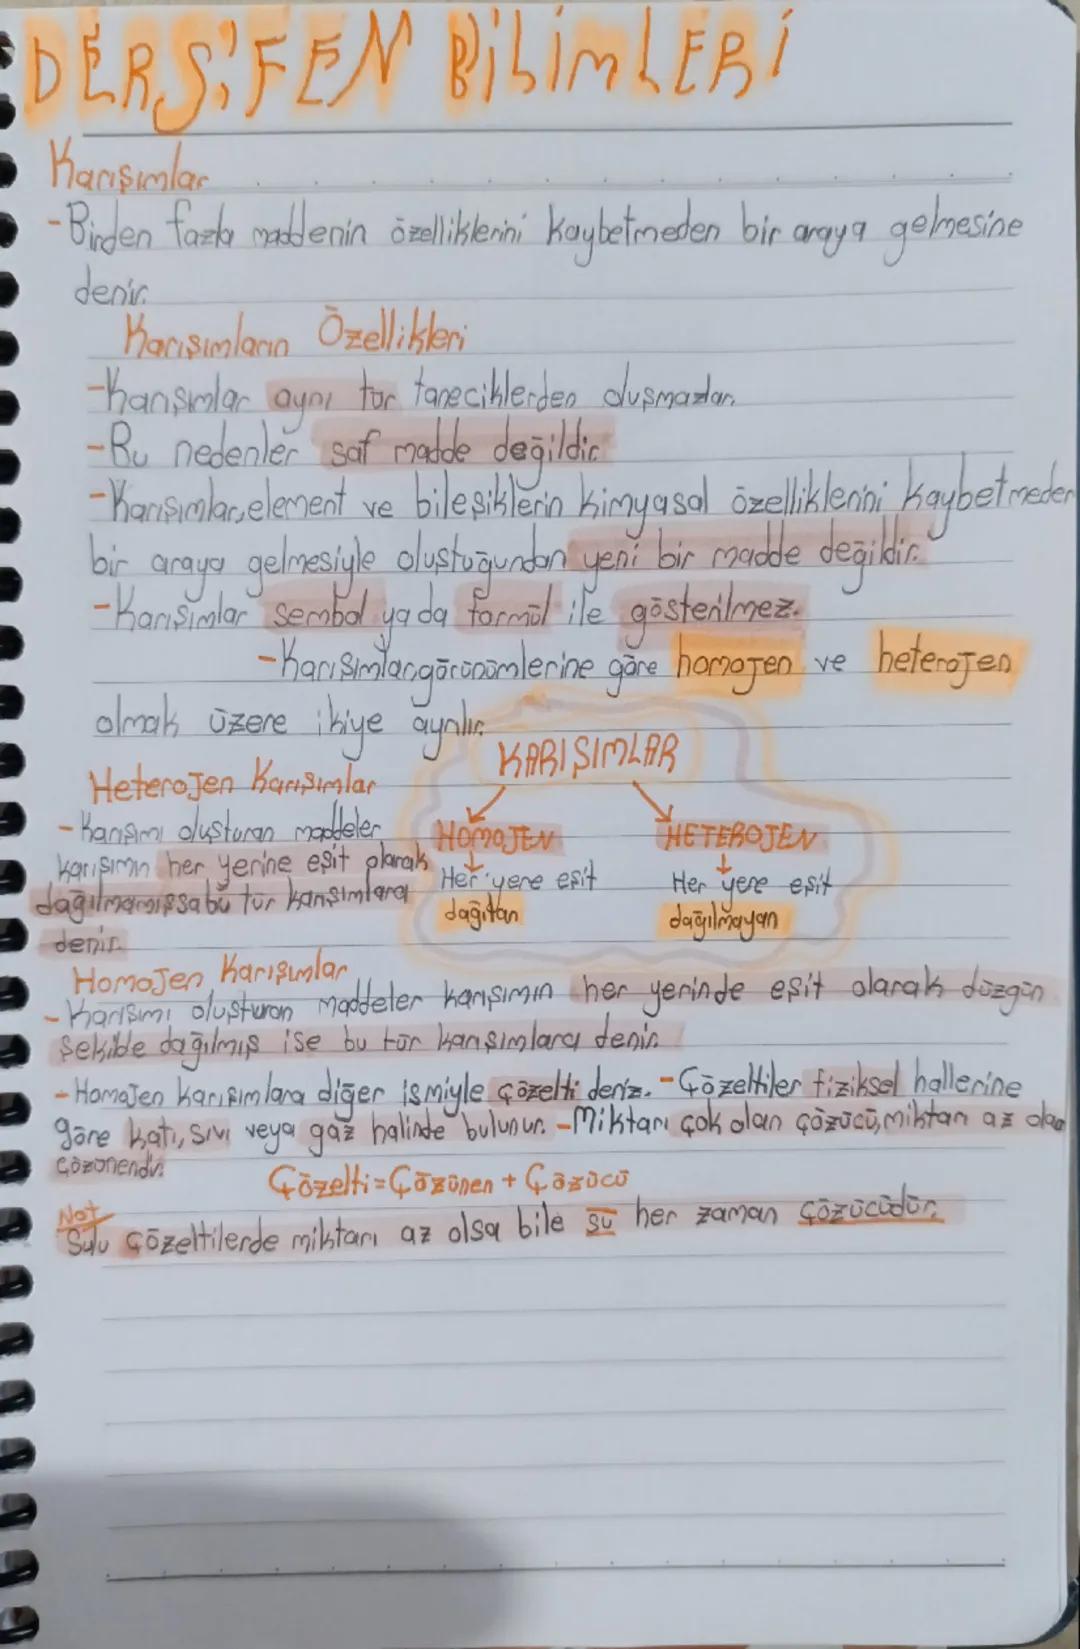 DERS: FEN BİLİMLERİ
Karışımlar
-Birden fazla maddenin özelliklerini kaybetmeden bir araya gelmesine
denir.
Karışımların Özellikleri
-Karışımlar aynı tür taneciklerden oluşmazlar.
-Bu nedenler saf madde değildir.
-Karışımlar, element ve bileşiklerin kimyasal özelliklerini kaybetmeden
bir araya gelmesiyle oluştuğundan yeni bir madde değildir.
-Karışımlar sembol ya da formül ile gösterilmez.
-Karışımlar, görünümlerine göre homojen ve heterojen
olmak üzere ikiye ayrılır.
KARIŞIMLAR
HOMOJEN
Her yere eşit
dağıtan
HETEROJEN
Her yere eşit
dağılmayan
Heterojen Karışımlar
-Karışımı oluşturan maddeler
karışımın her yerine eşit olarak
dağılmamışsa bu tür karışımlara
denir.
Homojen Karışımlar
-Karışımı oluşturan maddeler karışımın her yerinde eşit olarak düzgün
şekilde dağılmış ise bu tür karışımlara denir.
-Homojen karışımlara diğer ismiyle çözelti denir. -Çözeltiler fiziksel hallerine
göre katı, sıvı veya gaz halinde bulunur. -Miktarı çok olan çözücü, miktarı az olan
çözünendir.
Çözelti = Çözünen + Çözücü
Not
Sulu çözeltilerde miktarı az olsa bile su her zaman çözücüdür.